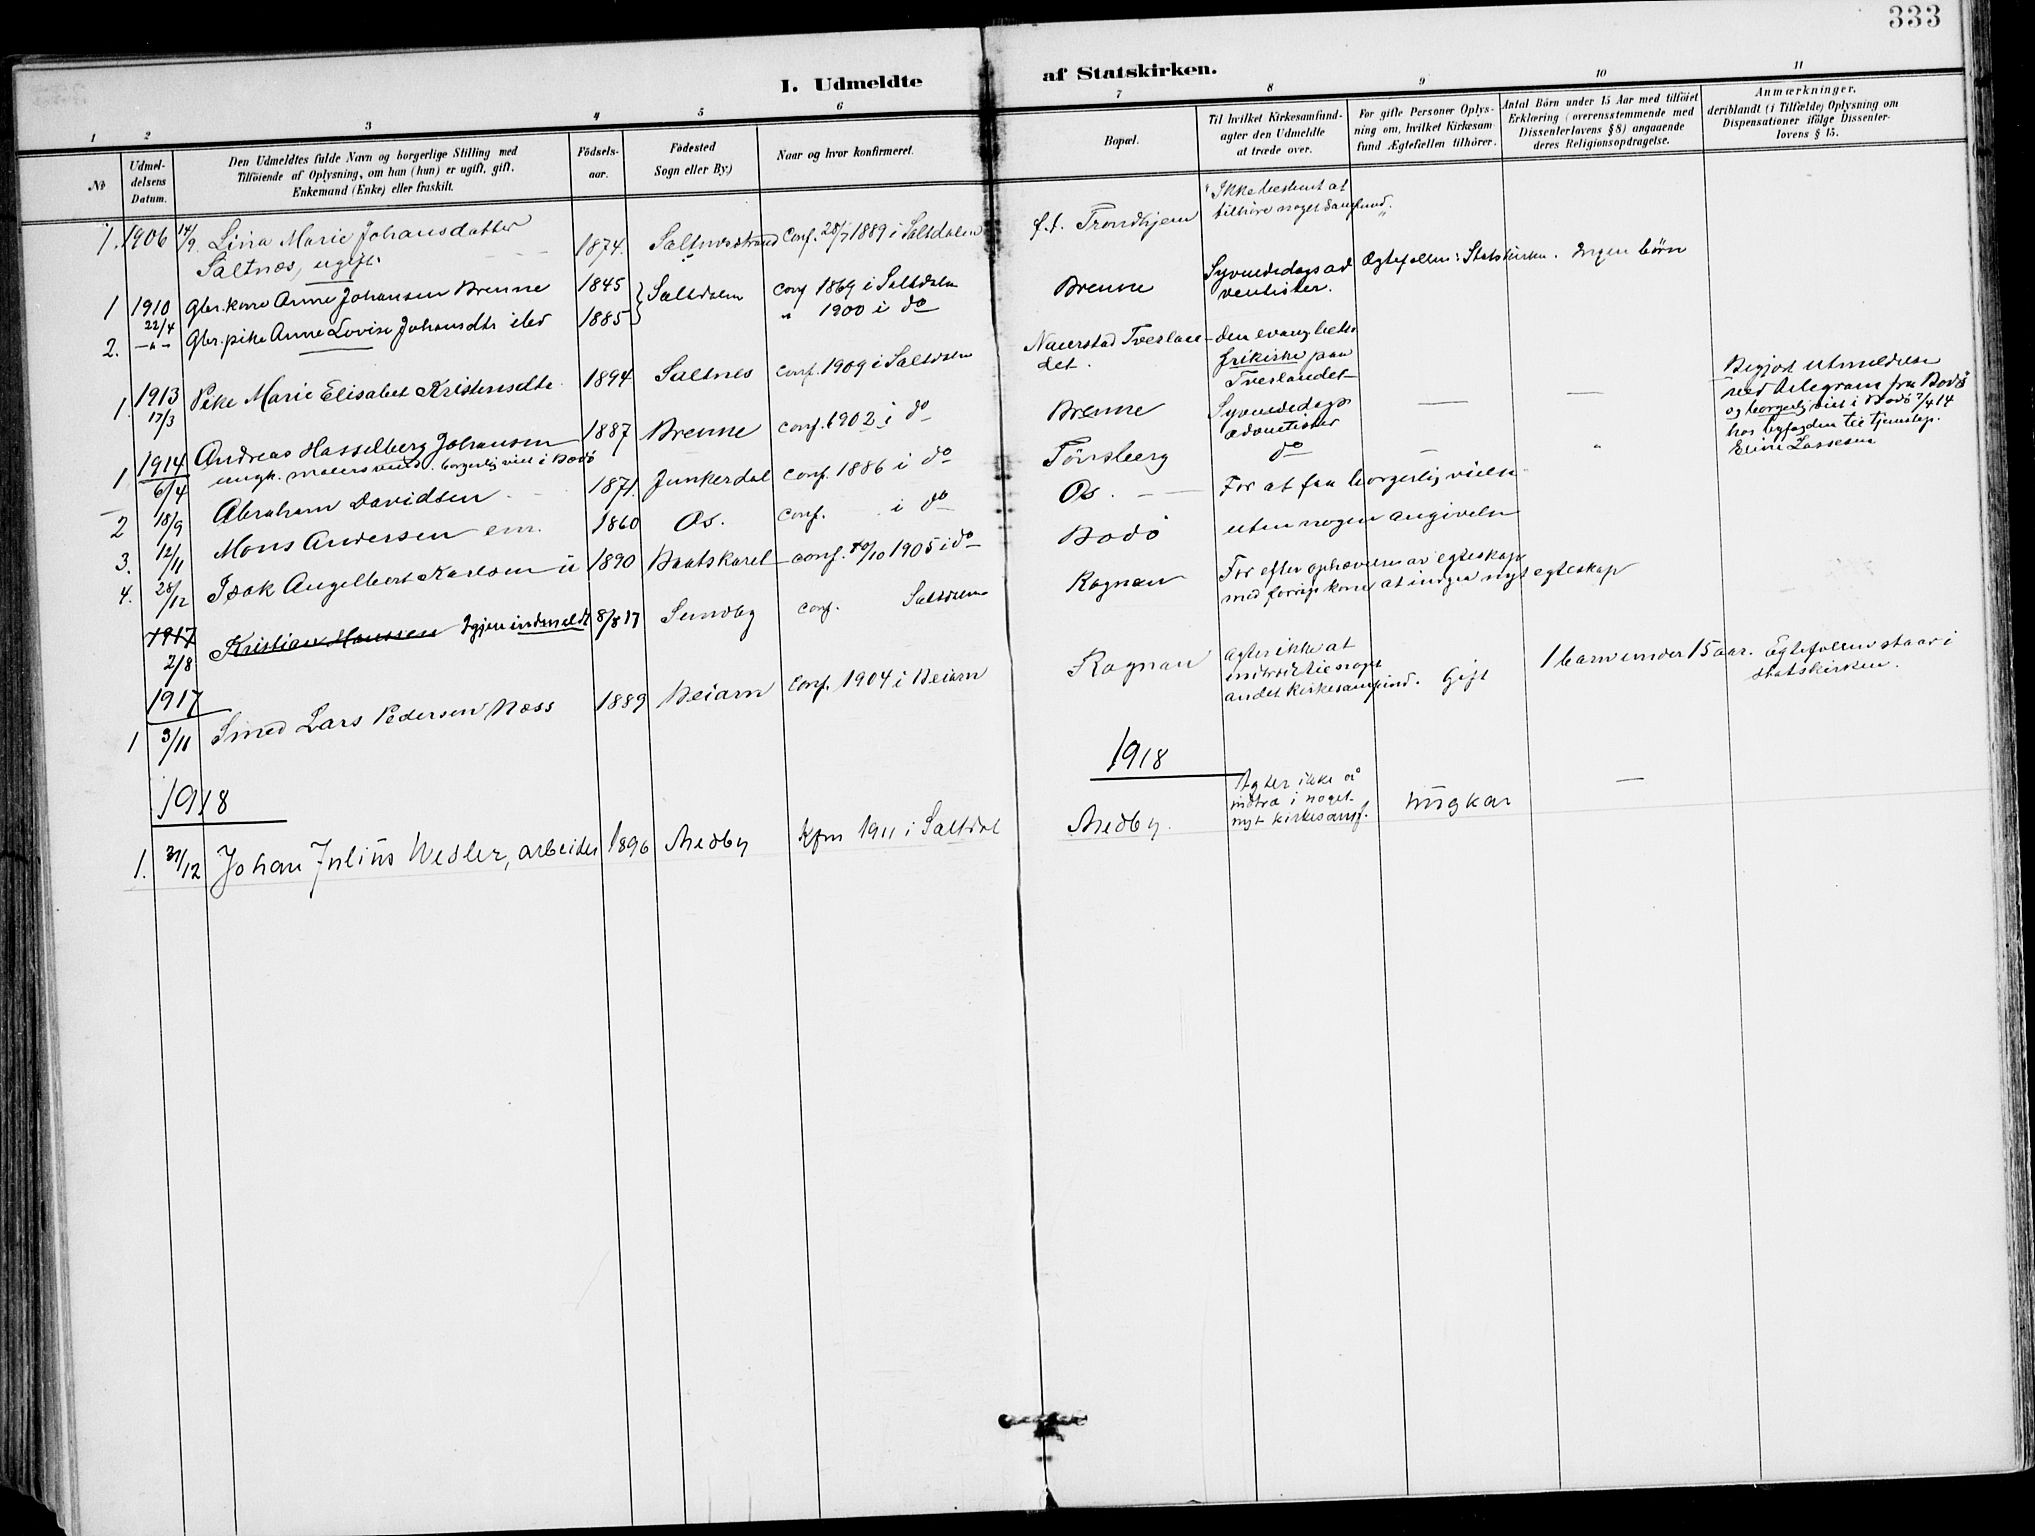 333
I. Udmeldte af Statskirken.
1 2 3 4 5 6 7 8 9 10 11
No
Udmel-
delsens
Datum.
Den Udmeldtes fulde Navn og borgerlige Stilling med
Tilföiende af Oplysning, om han (hun) er ugift, gift,
Enkemand (Enke) eller fraskilt.
Födsels-
aar.
Födested
Sogn eller By.)
Naar og hvor konfirmeret.
Bopæl.
Til hvilket Kirkesamfund
agter den Udmeldte
at træde over.
For gifte Personer Oplys-
ning om, hvilket Kirkesam-
fund Ægtefællen tilhörer.
Antal Börn under 15 Aar med tilföiet
Erklæring (overensstemmende med
Dissenterlovens § 8) angaaende
deres Religionsopdragelse.
Anmærkninger,
deriblandt (i Tilfælde) Oplysning om
Dispensationer ifölge Dissenter-
lovens § 15.
1. 1906 14/9. Lina Marie Johansdatter
Saltnæs, ugift
1874. Conf. 28/7 1889 i Saltdalen
f.t. Trondhjem
Ikke bestemt at
tilhöre noget Samfund.
1 1910 22/4 Gbr.kone Anne Johansen Brenne 1845 Saltdalen conf 1869 i Saltdalen
Brenne
Syvendedags ad
ventister.
Ægtefællen i Statskirken. Ingen börn
2. -"- Gbr.pike Anne Lovise Johansdtr ibd 1885 " 1900 i do
1. 1913 17/3 Pike Marie Elisabet Kristensdtr. 1894 Saltnes conf. 1909 i Saltdalen
det.
den evang luth.
frikirke paa
Tverlandet
1 1914 6/4 Andreas Hasselberg Johansen
ungk. borgerlig viet i Bodö
1887 Brenne conf. 1902 i do
Brenne
Syvendedags
adventister
Begjært utmeldelse
ved telegram fra Bodö
og borgerlig viet i Bodö 7/4 14
2 18/9 Abraham Davidsen 1871. Junkerdal conf. 1886 i do
Tönsberg do
3. 12/11 Mons Andersen em. 1860 Os. conf. i do
Os. For at faa borgerlig vielse
4. 28/12 Isak Angelbert Karlsen u 1890 Baatskaret conf. 10/10 1905 i do
Bodö uten nogen angivelse
1917 2/8 Kristian Hanssen Igjen indmeldt 8/8 17 Sundby conf. Saltdalen
Rognan
For efter ophævelse av egteskap
med forrige kone at indgaa nyt egteskap
1917
1 3/11 Smed Lars Pedersen Næss 1889 Beiarn Conf. 1904 i Beiarn
Rognan
agter ikke at
indtræ til noget
andet kirkesamfund.
Gift
1 barn under 15 aar.
Ægtefællen staar i
statskirken.
1918 1918
1. 31/12 Johan Julius Medler, arbeider 1896 Medby Kfm 1911 i Saltdal
Medby.
Agter ikke å
indtræ i noget
nyt kirkesamf.
Ungkar